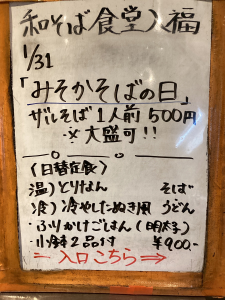 和そば食堂 八福
1/31
「みそかそばの日」
ザルそば 1人前 500円
※ 大盛可!!
(日替定食)
温)とりなん そば
冷)冷やしたぬき風 うどん
・ふりかけごはん(明太子)
・小鉢2品付 ¥900-
入口こちら→